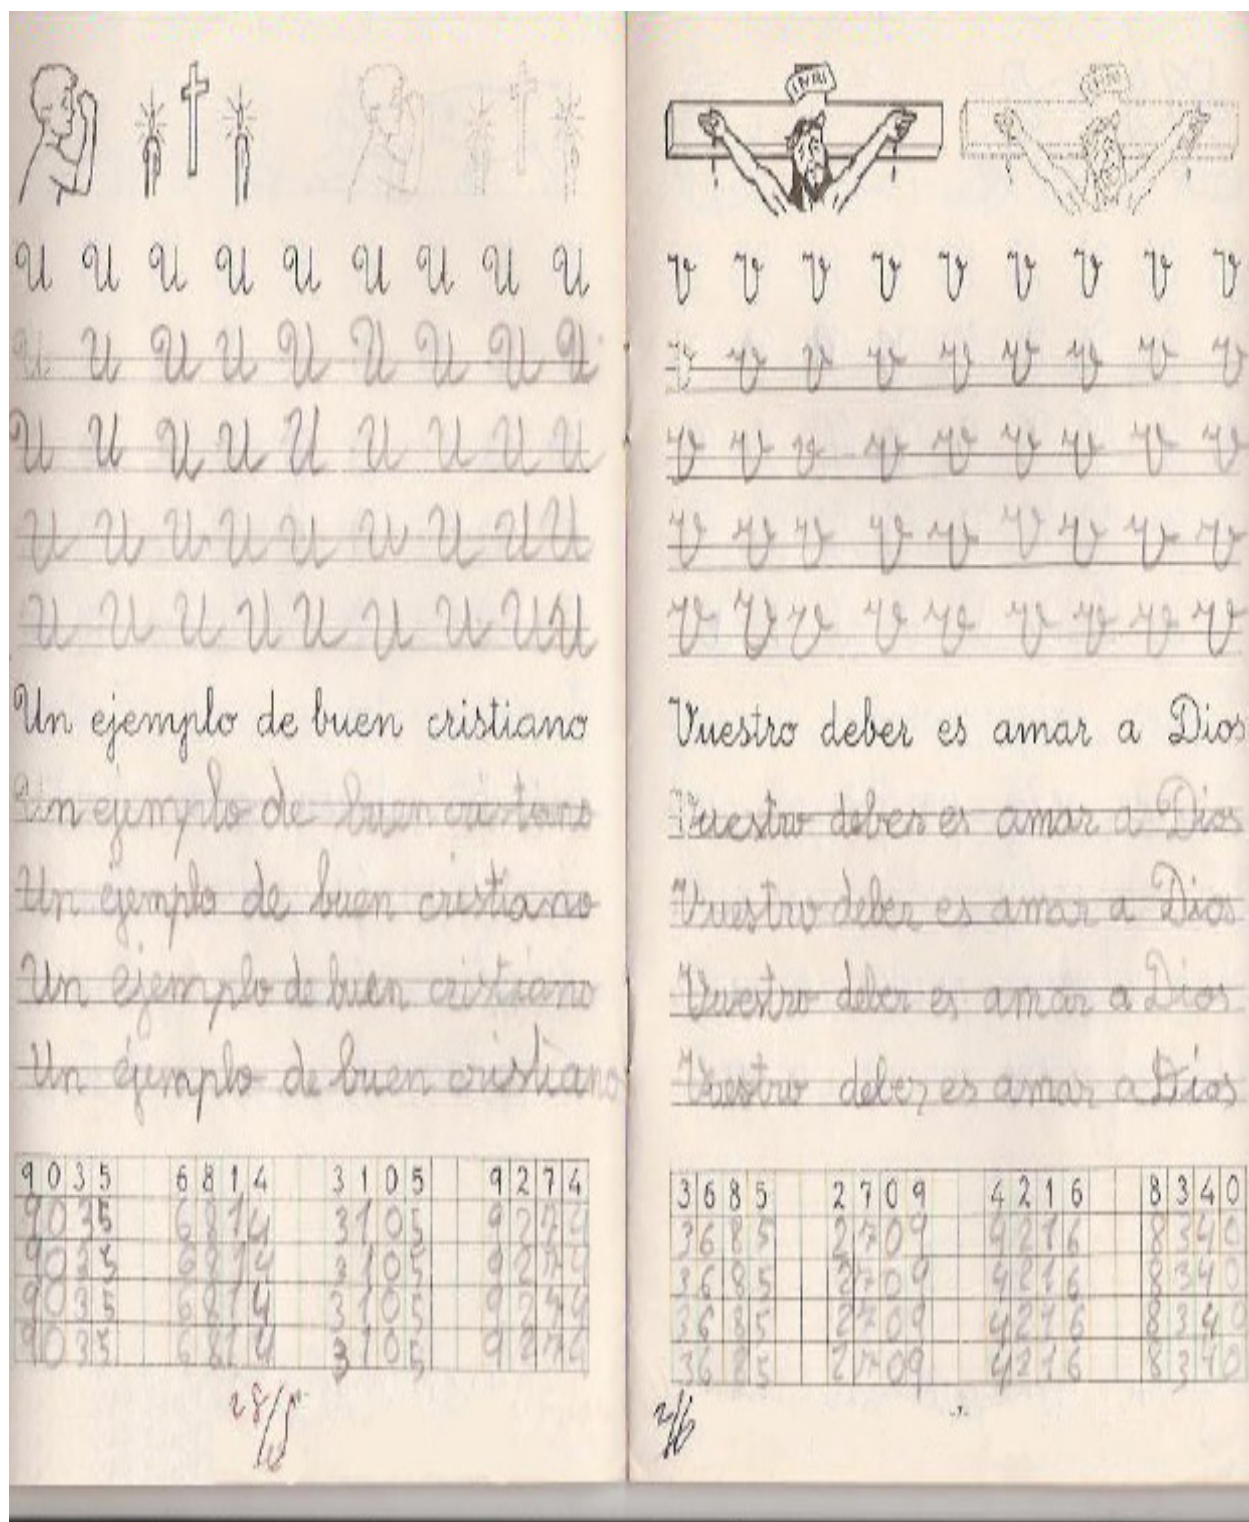 U U U U U U U U U
U U U U U U U U U
U U U U U U U U U
U U U U U U U U U
U U U U U U U U U
Un ejemplo de buen cristiano
Un ejemplo de buen cristiano
Un ejemplo de buen cristiano
Un ejemplo de buen cristiano
Un ejemplo de buen cristiano
9035 6814 3105 9274
9035 6814 3105 9274
9035 6814 3105 9274
9035 6814 3105 9274
9035 6814 3105 9274
INRI INRI
V V V V V V V V V
V V V V V V V V V
V V V V V V V V V
V V V V V V V V V
V V V V V V V V V
Vuestro deber es amar a Dios
Vuestro deber es amar a Dios
Vuestro deber es amar a Dios
Vuestro deber es amar a Dios
Vuestro deber es amar a Dios
3685 2709 4216 8340
3685 2709 4216 8340
3685 2709 4216 8340
3685 2709 4216 8340
3685 2709 4216 8340
2/6